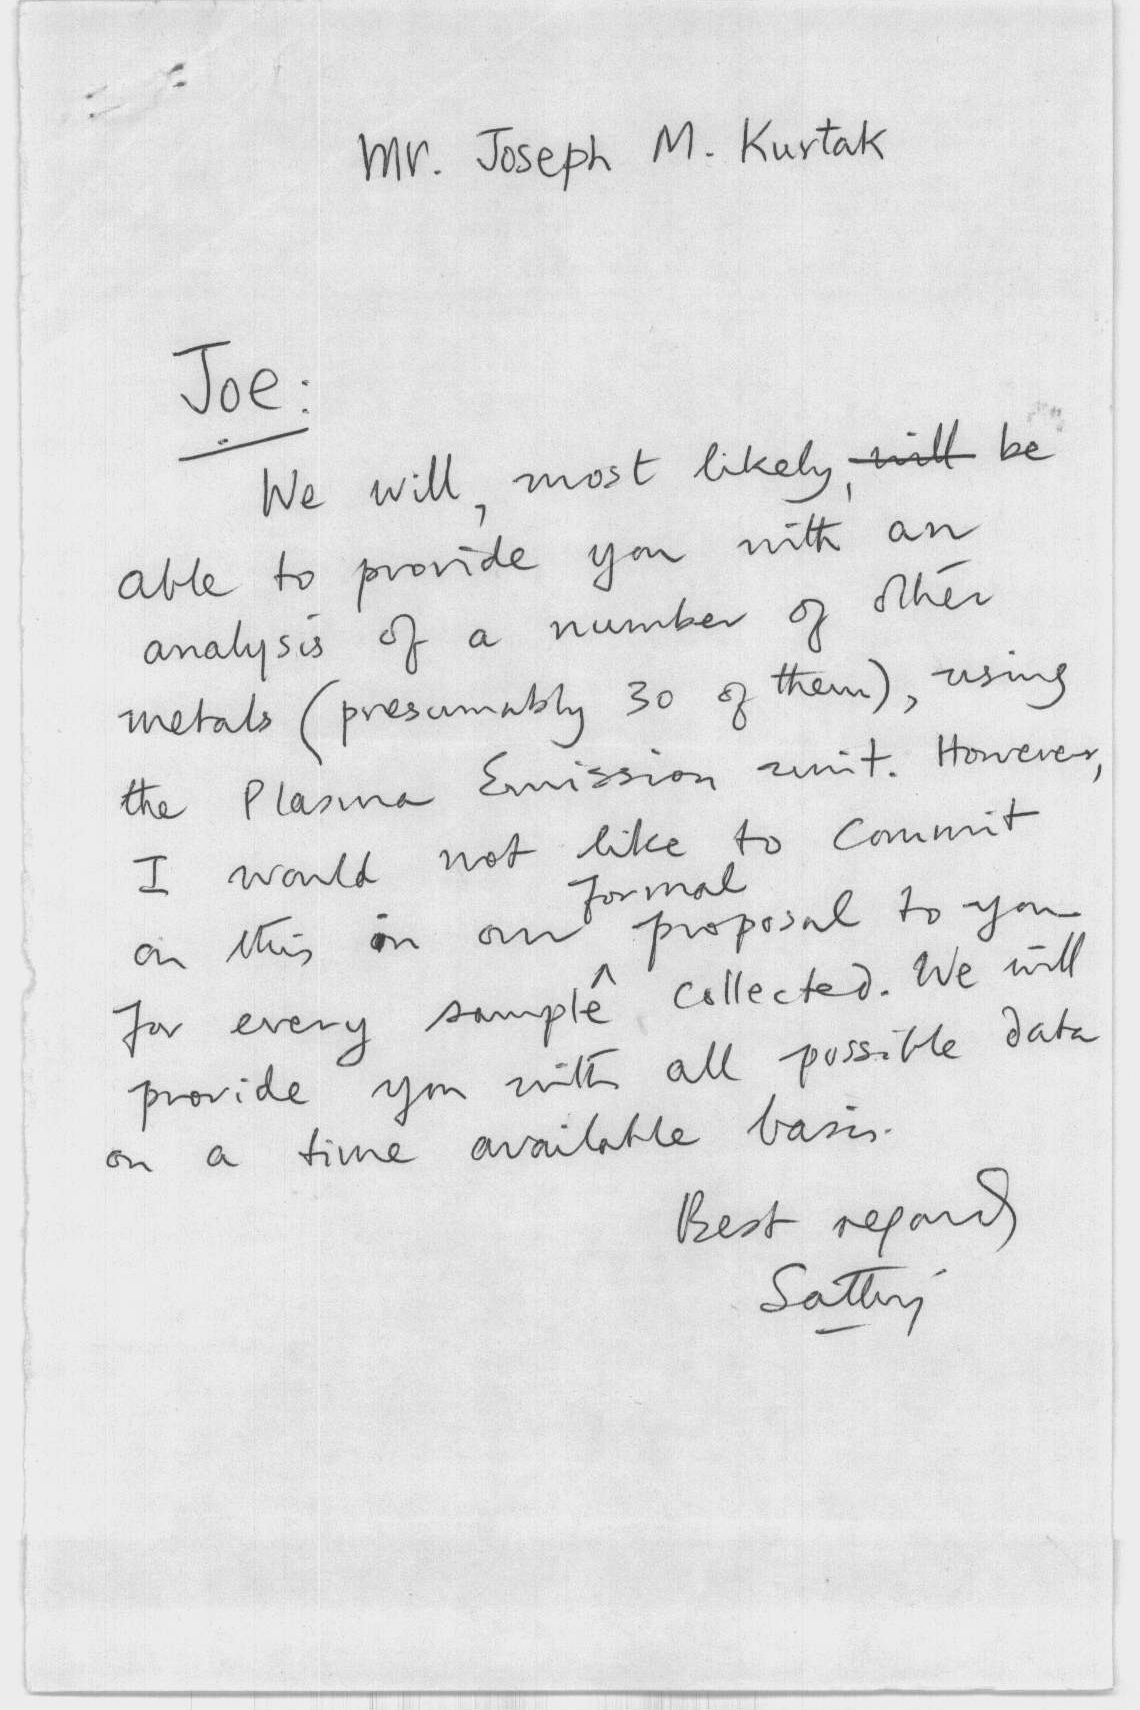 Mr. Joseph M. Kurtak
Joe:
We will, most likely, will be
able to provide you with an
analysis of a number of other
metals (presumably 30 of them), using
the Plasma Emission unit. However,
I would not like to commit
formal
on this in our proposal to you
for every sample collected. We will
provide you with all possible data
on a time available basis.
Best regards